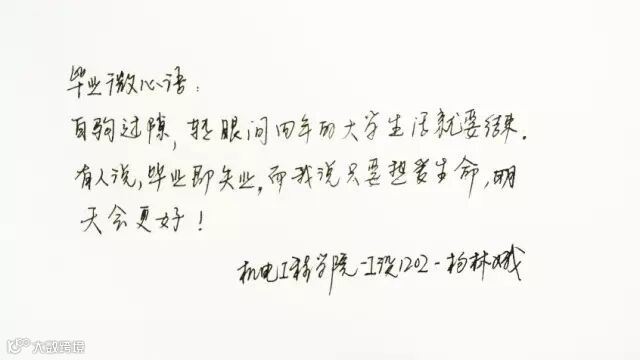 毕业微心语：
白驹过隙，转眼间四年的大学生活就要结束。
有人说，毕业即失业，而我说只要热爱生命，明
天会更好！
机电工程学院-工设1202-杨林娥
大数跨境